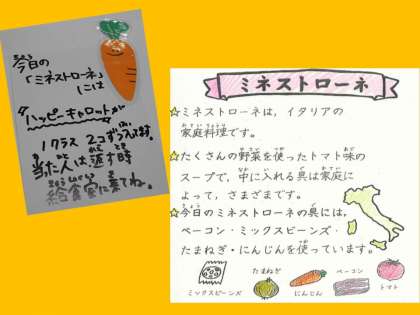 今日の
「ミネストローネ」
には
ハッピーキャロットが
1クラス 2コずつ入ってます。
当った人は返す時
給食室に来てね。
ミネストローネ
☆ミネストローネは、イタリアの
家庭料理です。
☆たくさんの野菜を使ったトマト味の
スープで、中に入れる具は家庭に
よって、さまざまです。
☆今日のミネストローネの具には、
ベーコン・ミックスビーンズ・
たまねぎ・にんじんを使っています。
ミックスビーンズ
たまねぎ
にんじん
ベーコン
トマト